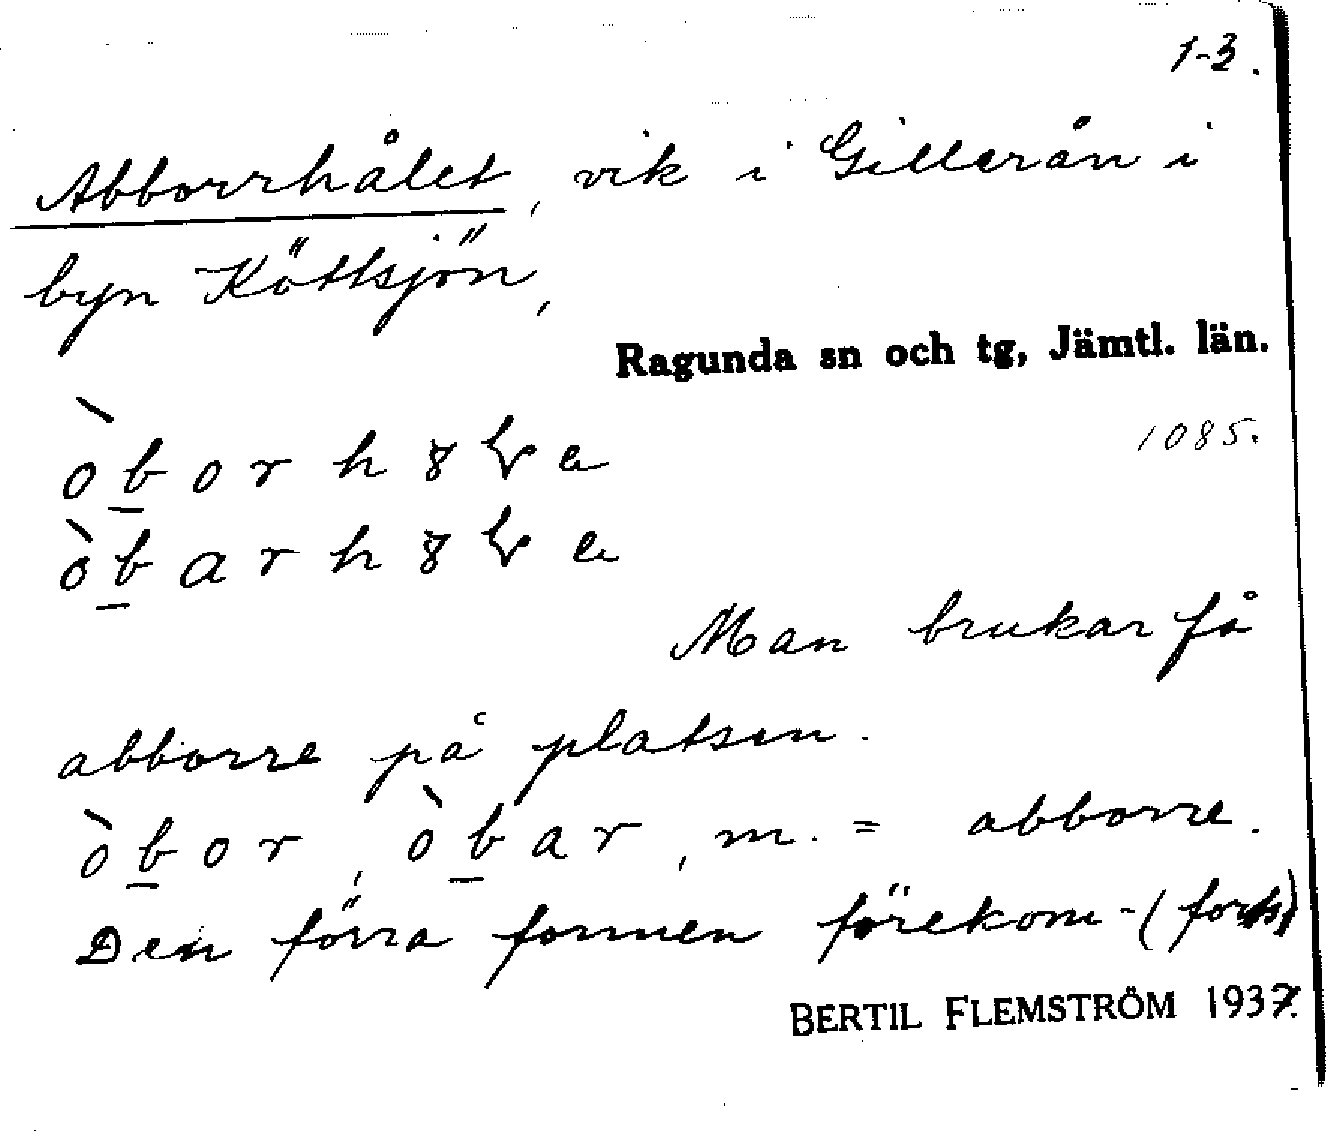 1-3.
Abborrhålet, vik i Gillerån i
byn Köttsjön,
Ragunda sn och tg, Jämtl. län.
1085.
Man brukar få
abborre på platsen.
òbor, òbar, m. = abborre.
Den förra formen förekom-(forts)
BERTIL FLEMSTRÖM 1937.